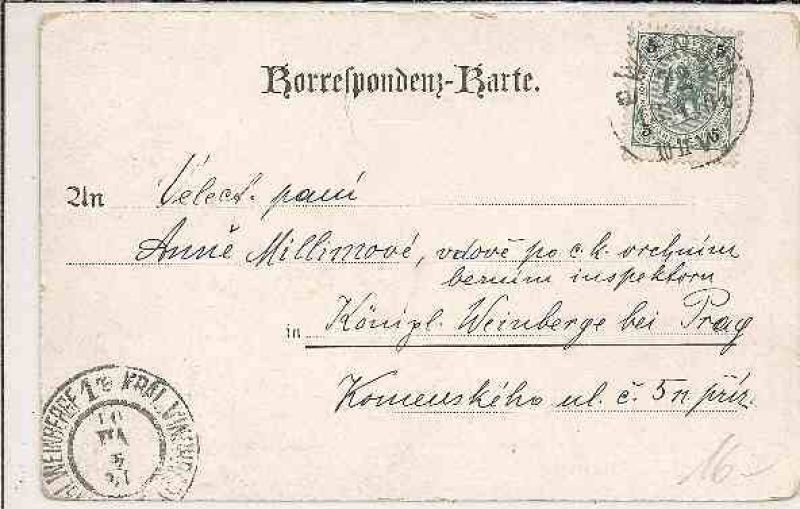 Korrespondenz-Karte.
5 5
5 5
10-11 V
An Velect. paní
Anně Millimové, vdově po c. k. vrchním
berním inspektoru
in Königl. Weinberge bei Prag
Komenského ul. č. 5 n příz.
WEINBERGE 1 KRÁL. VINOHRADY
16-